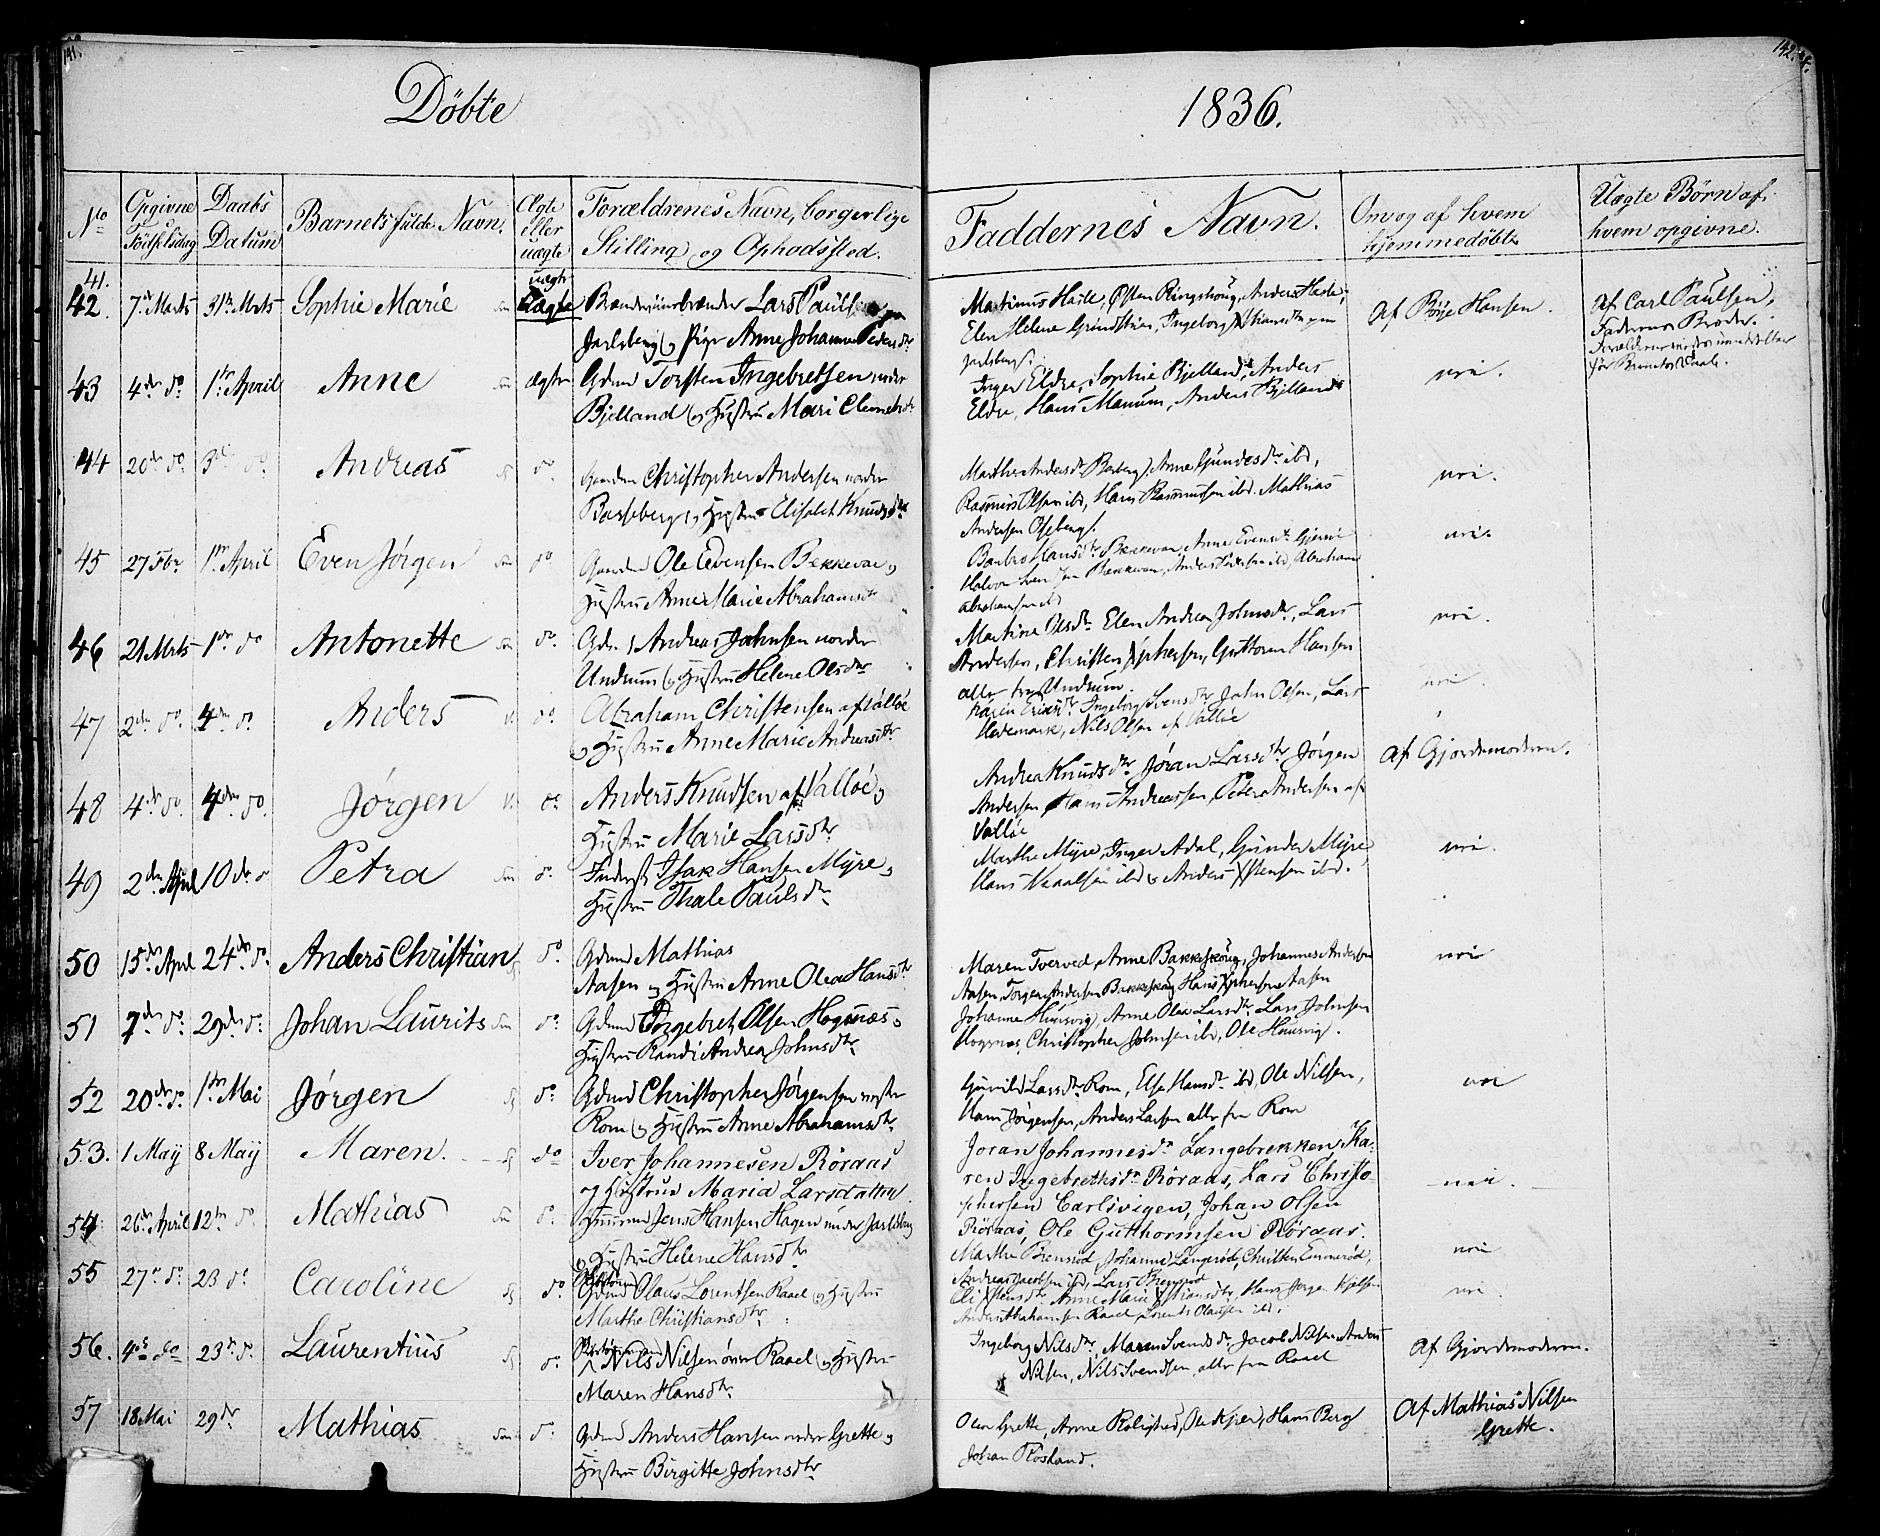 141.
142.
Døbte
1836.
No
Opgivne Fødselsdag
Daabs Datum
Barnets fulde Navn.
Ægte eller uægte
Forældrenes Navn, borgerlige Stilling og Opholdssted.
Faddernes Navn.
Om og af hvem hjemmedøbte
Uægte Børn af hvem opgivne.
41.
42.
7de Marts
31te Mrts
Sophie Marie
uægte
Brændeviinsbrænder Lars Paulsen
Jarlsberg og Pige Anne Johanne Peders dtr
Martinus Hasle, Østen Ringshoug, Anders Hasle,
Elen Helene Grindstuen, Ingeborg Xtiansdtr
Jarlsberg.
Af Børje Hansen.
Af Carl Paulsen,
Faderens Broder.
43
4de do
1te April
Anne
ægte
Gdmd Torsten Ingebretsen nordre
Bjelland og Hustru Mari Clemetsdtr
Inger Eldre, Sophie Bjelland, Anders
Eldre, Hans Manum, Anders Bjelland
nei.
44
20de do
3de do
Andreas
do
Gaardmd Christopher Andersen nordre
Basseberg og Hustru Elisabet Knudsdtr
Marthe Andersdr Basberg, Anne Gundesdtr ibd,
Rasmus Olsen ibd, Hans Rasmussen ibd. Mathias
Andersen Oseberg.
nei.
45
27 Febr
1te April
Even Jørgen
do
Gaardmd Ole Evensen Bekkevar og
Hustru Anne Marie Abrahamsdtr
Barbro Hansdtr Bekkevar, Anne Evensdtr
Halvor Bekkevar, Anders ibd, Abraham
Abrahamsen ibd
nei.
46
21 Mrts
1te do
Antonette
do
Gdm. Andreas Johnsen nordre
Undrum og Hustru Helene Olsdtr
Martina Olsdtr Elen Andrea Johnsdtr, Lars
Andersen, Christen Xtphersen, Guttorm Hansen
alle fra Undrum.
nei.
47
2den do
4de do
Anders
do
Abraham Christensen af Valløe
og Hustru Anne Marie Andreasdtr
Karen Eriksdtr Ingeborg Svensdtr John Olsen, Lars
Hedemark, Nils Olsen af Valløe
nei.
48
4de do.
4de do.
Jørgen
do
Anders Knudsen af Valløe og
Hustru Marie Larsdtr
Andrea Knudsdtr Jøran Larsdtr Jørgen
Andersen Hans Andreassen, Peter Andersen af
Valløe
Af Gjordemoderen.
49
2den April
10de do
Petra
do
Inderst Isak Hansen Myre og
Hustru Thale Paulsdtr
Marthe Myre, Inger Adal, Gunder Myre,
Hans ibd og Anders Xtensen ibd.
nei.
50
15de April
24de do.
Anders Christian
do
Gdmd Mathias
Aasen og Hustru Anne Olea Hansdtr
Maren Tverved, Anne Bakkeskoug, Johannes Andersen
Aasen, Torger Andersen Bakkeskoug Hans Xtphersen Aasen
nei
51
7de do.
29de do.
Johan Laurits
do
Gdmd Torgebret Olsen Hogsnæs og
Hustru Randi Andrea Johnsdtr
Johanne Huusvig, Anne Olea Larsdtr Lars Johnsen
Hogsnæs, Christopher Johnsen ibd, Ole Huusvig.
52
20de do
1te Mai
Jørgen
do
Gdmd Christopher Jørgensen vestre
Rom og Hustru Anne Abrahamsdtr
Gunild Larsdtr Rom, Else Hansdtr ibd, Ole Nilsen,
Hans Jørgensen, Anders Larsen alle fra Rom
nei
53.
1 Maij
8 Maij
Maren.
do
Iver Johannesen Røraas
og Hustrue Maria Larsdatter
Joran Johannesdr Langebrekken, Ka-
ren Ingebrethsdr Røraas, Lars Christo-
phersen Carlsvigen, Johan Olsen
Røraas, Ole Gutthormsen Røraas.
nei.
54
26de April
12te do
Mathias
do
Huusmd Jens Hansen Hagen under Jarlsberg
og Hustru Helene Hansdtr
Marthe Brensrød, Johanne Langerød, Christen Emmerød,
Andreas Jacobsen ibd, Lars
nei
55
27de do
23 do
Caroline
do
Olaus Lorentsen Raael og Hustru
Marthe Christiansdtr
Eli Xtensdtr Anne Marie Xtiansdtr, Hans Jørgen
Anders Abrahamsen Raael, Lorents Olausen ibd.
nei.
56.
4de do
23de do
Laurentius
do
Nils Nilsen øvre Raael og Hustru
Maren Hansdtr.
Ingeborg Nilsdtr, Maren Svendsdr Jacob Nilsen Anders
Nilsen, Nils Svendsen, alle fra Raael
Af Gjordemoderen.
57
18 Mai
29de
Mathias
do
Gdmd Anders Hansen nordre Grette og
Hustru Birgitte Johnsdtr
Olea Grette, Anne Rolighed, Ole Kjær, Hans Berg
Johan Rosland.
Af Mathias Nilsen
Grette.